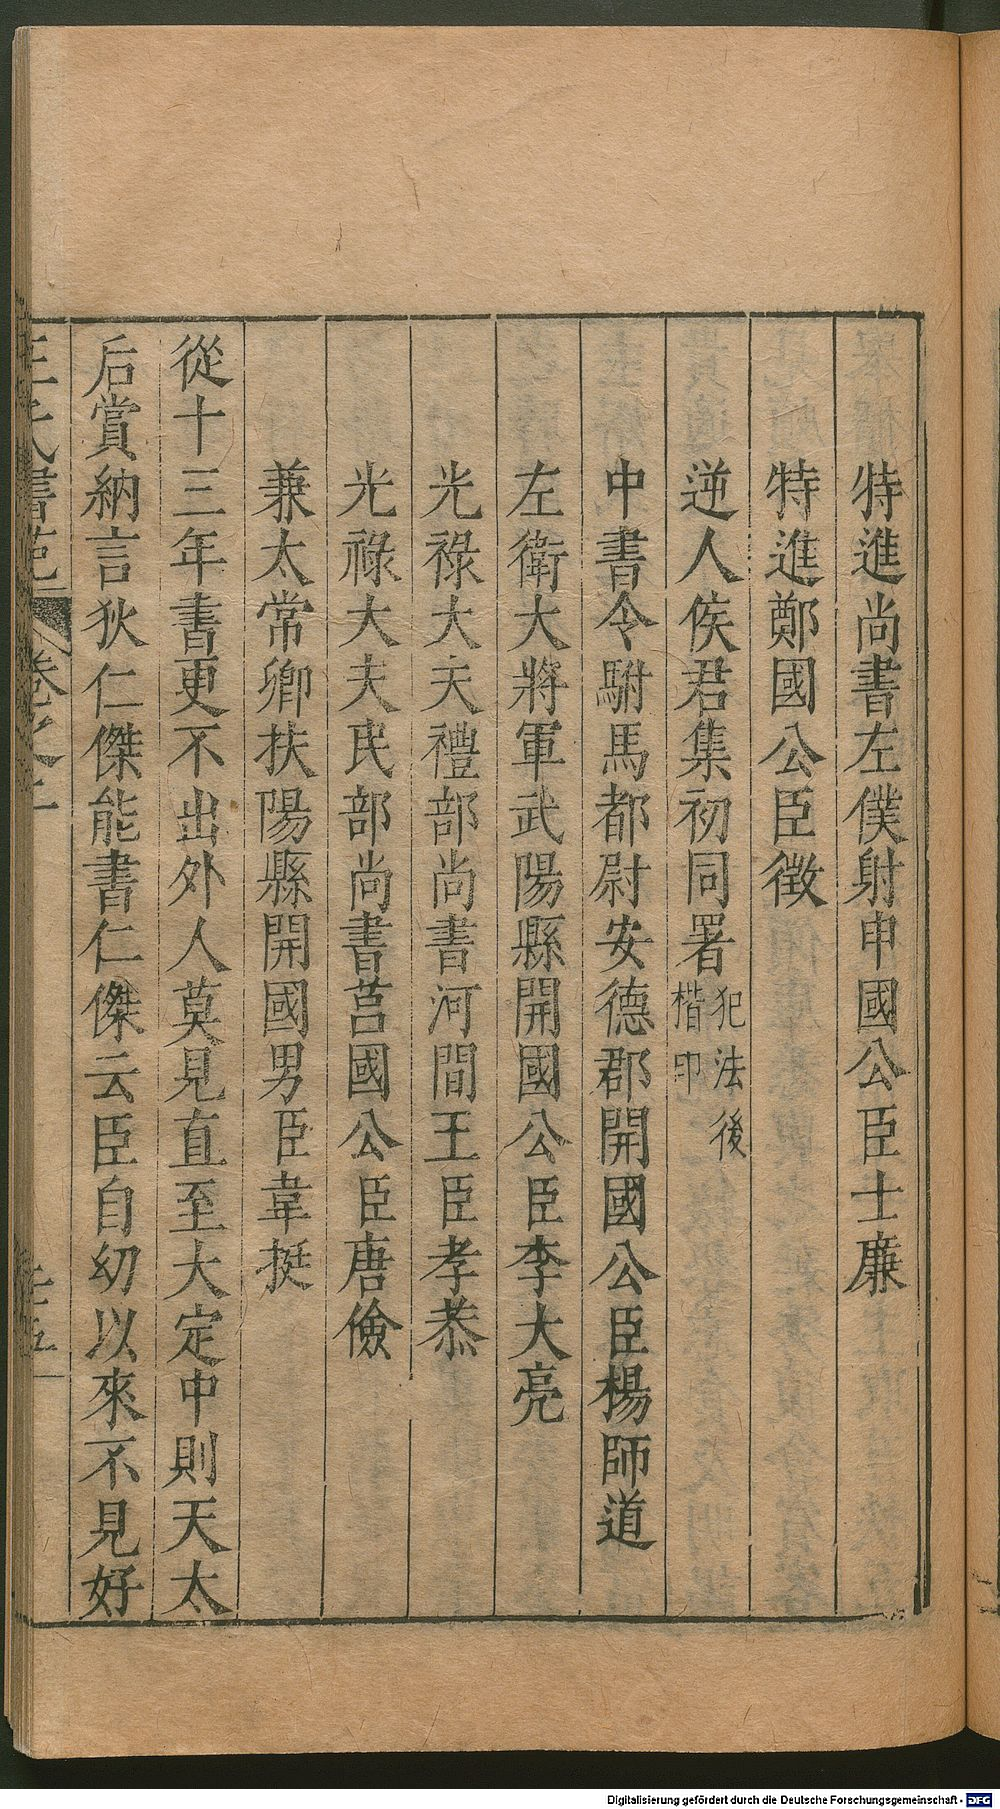 特進尚書左僕射申國公臣士廉
特進鄭國公臣徵
逆人侯君集初同署
犯法後
楷印
中書令駙馬都尉安德郡開國公臣楊師道
左衛大將軍武陽縣開國公臣李大亮
光祿大夫禮部尚書河間王臣孝恭
光祿大夫民部尚書莒國公臣唐儉
兼太常卿扶陽縣開國男臣韋挺
從十三年書更不出外人莫見直至大定中則天太
后賞納言狄仁傑能書仁傑云臣自幼以來不見好
王氏書苑
卷之
Digitalisierung gefördert durch die Deutsche Forschungsgemeinschaft - DFG